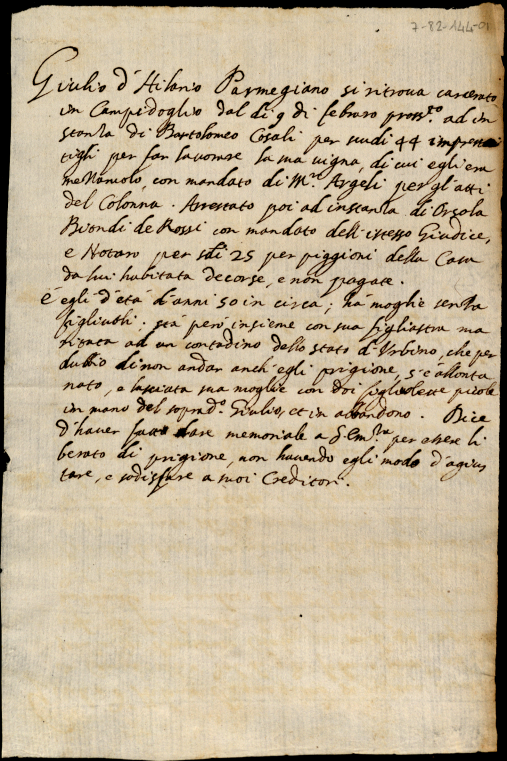 7-82-144-01
Giulio d'Hilario Parmegiano si ritroua carcerato
in Campidoglio dal dì 9 di febraro pross.to ad in
stanza di Bartolomeo Casali per scudi 44 impresta
tigli per far lauorare la sua uigna, di cui egli era
mezzaniolo, con mandato di M.r Argeli per gl'atti
del Colonna. Arrestato poi ad instanza di Orsola
Biondi de Rossi con mandato dell'istesso Giudice,
e Notaro per sdi 25 per piggioni della Casa
da lui habitata decorse, e non pagate.
È egli d'età d'anni 50 in circa; ha moglie senza
figliuoli: stà però insieme con sua figliastra ma
ritata ad un contadino dello stato d'Urbino, che per
dubbio di non andar anch'egli prigione, s'è allonta
nato, e lasciata sua moglie con doi figliolette picole
in mano del soprad.o Giulio, et in abbandono. Dice
d'hauer fatto dare memoriale a S. Em.za per essere li
berato di prigione, non hauendo egli modo d'agius
tare, e sodisfare a suoi Creditori.